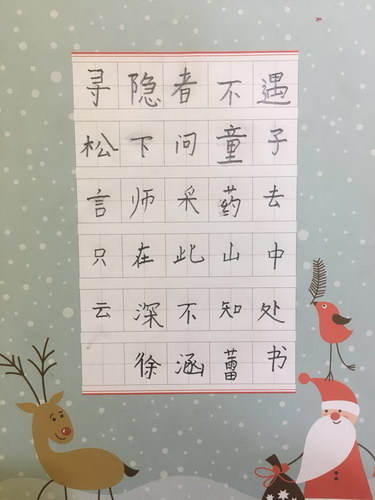 寻隐者不遇
松下问童子
言师采药去
只在此山中
云深不知处
徐涵蕾书